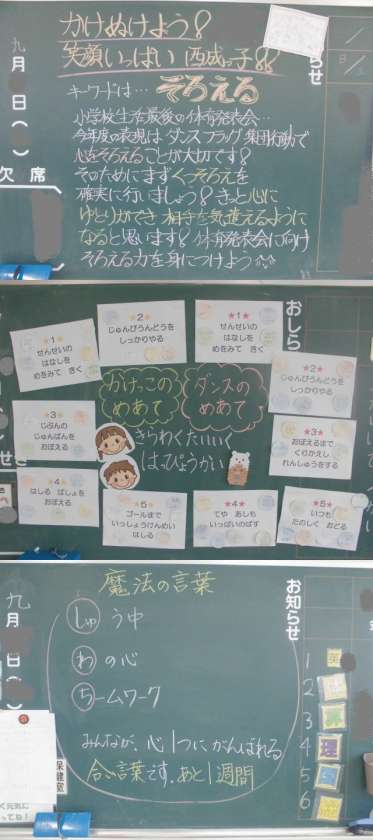 かけぬけよう!
笑顔いっぱい 西成っ子!!
キーワードは… そろえる
小学校生活最後の体育発表会…
今年度の表現はダンス フラッグ 集団行動で
心をそろえることが大切です!
そのためにまずくつそろえを
確実に行いましょう!きっと心に
ゆとりができ 相手を気遣えるように
なると思います!体育発表会に向け
そろえる力を身につけよう
九
月
日
欠席
らせ
おしら
★1
せんせいの
はなしを
めをみて きく
★2
じゅんびうんどうを
しっかりやる
★3
じぶんの
じゅんばんを
おぼえる
★4
はしる ばしょを
おぼえる
★5
ゴールまで
いっしょうけんめい
はしる
かけっこの
めあて
ダンスの
めあて
★1★
せんせいの
はなしを
めをみて きく
★2★
じゅんびうんどうを
しっかりやる
★3★
おぼえるまで
くりかえし
れんしゅうをする
★4★
てや あしも
いっぱいのばす
★5★
いつも
たのしく おどる
きらわくたいいく
はっぴょうかい
九
月
日
魔法の言葉
しゅう中
わの心
ちームワーク
みんなが、心1つにがんばれる
合い言葉です。あと1週間
お知らせ
1 英
2
3
4 理
5
6
保健室